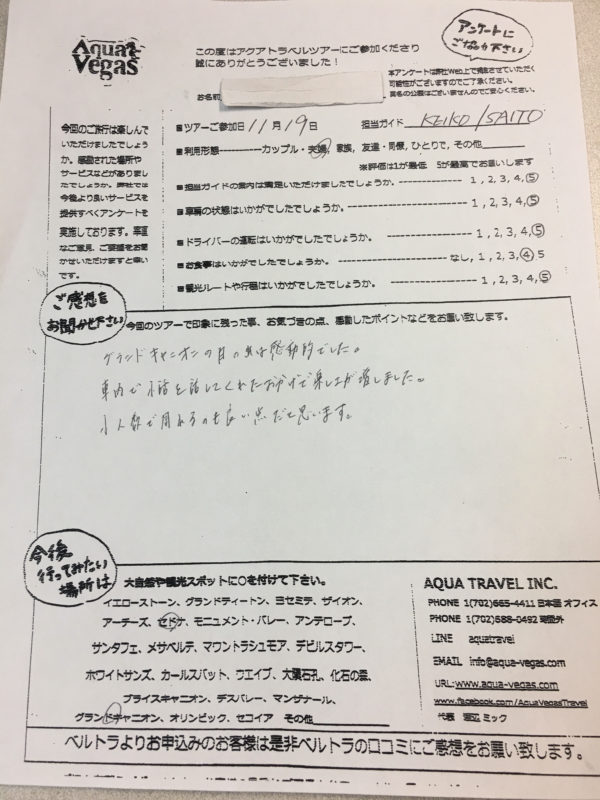 Aqua Vegas
この度はアクアトラベルツアーにご参加くださり
誠にありがとうございました！
アンケートに
ご協力下さい
本アンケートは弊社Web上で掲載させていただく
可能性がございますのでご了承ください。
実名の公表はございませんのでご安心ください。
お名前
今回のご旅行は楽しんで
いただけましたでしょう
か。感動された場所や
サービスなどがありまし
たでしょうか。弊社では
今後より良いサービスを
提供すべくアンケートを
実施しております。率直
なご意見、ご要望をお聞
かせいただけますと幸い
です。
■ツアーご参加日 11月19日 担当ガイド KEIKO/SAITO
■利用形態----------カップル・夫婦, 家族, 友達・同僚, ひとりで, その他
※評価は1が最低 5が最高でお願いします
■担当ガイドの案内は満足いただけましたでしょうか。---------- 1, 2, 3, 4, 5
■車輌の状態はいかがでしたでしょうか。---------- 1, 2, 3, 4, 5
■ドライバーの運転はいかがでしたでしょうか。---------- 1, 2, 3, 4, 5
■お食事はいかがでしたでしょうか。---------- なし, 1, 2, 3, 4, 5
■観光ルートや行程はいかがでしたでしょうか。---------- 1, 2, 3, 4, 5
ご感想を
お聞かせ下さい
今回のツアーで印象に残った事、お気づきの点、感動したポイントなどをお願い致します。
グランドキャニオンの日の出は感動的でした。
車内で小話を話してくれたおかげで楽しさが増しました。
少人数で周れるのも良い点だと思います。
今後
行ってみたい
場所は
大自然や観光スポットに○を付けて下さい。
イエローストーン、グランドティートン、ヨセミテ、ザイオン、
アーチーズ、セドナ、モニュメント・バレー、アンテロープ、
サンタフェ、メサベルデ、マウントラシュモア、デビルスタワー、
ホワイトサンズ、カールスバット、ウエイブ、大鍾石孔、化石の森、
ブライスキャニオン、デスバレー、マンザナール、
グランドキャニオン、オリンピック、セコイア その他
AQUA TRAVEL INC.
PHONE 1(702)665-4411 日本語 オフィス
PHONE 1(702)688-0492 時間外
LINE aquatravel
EMAIL info@aqua-vegas.com
URL:www.aqua-vegas.com
www.facebook.com/AquaVegasTravel
代表 渡辺 ミック
ベルトラよりお申込みのお客様は是非ベルトラの口コミにご感想をお願い致します。